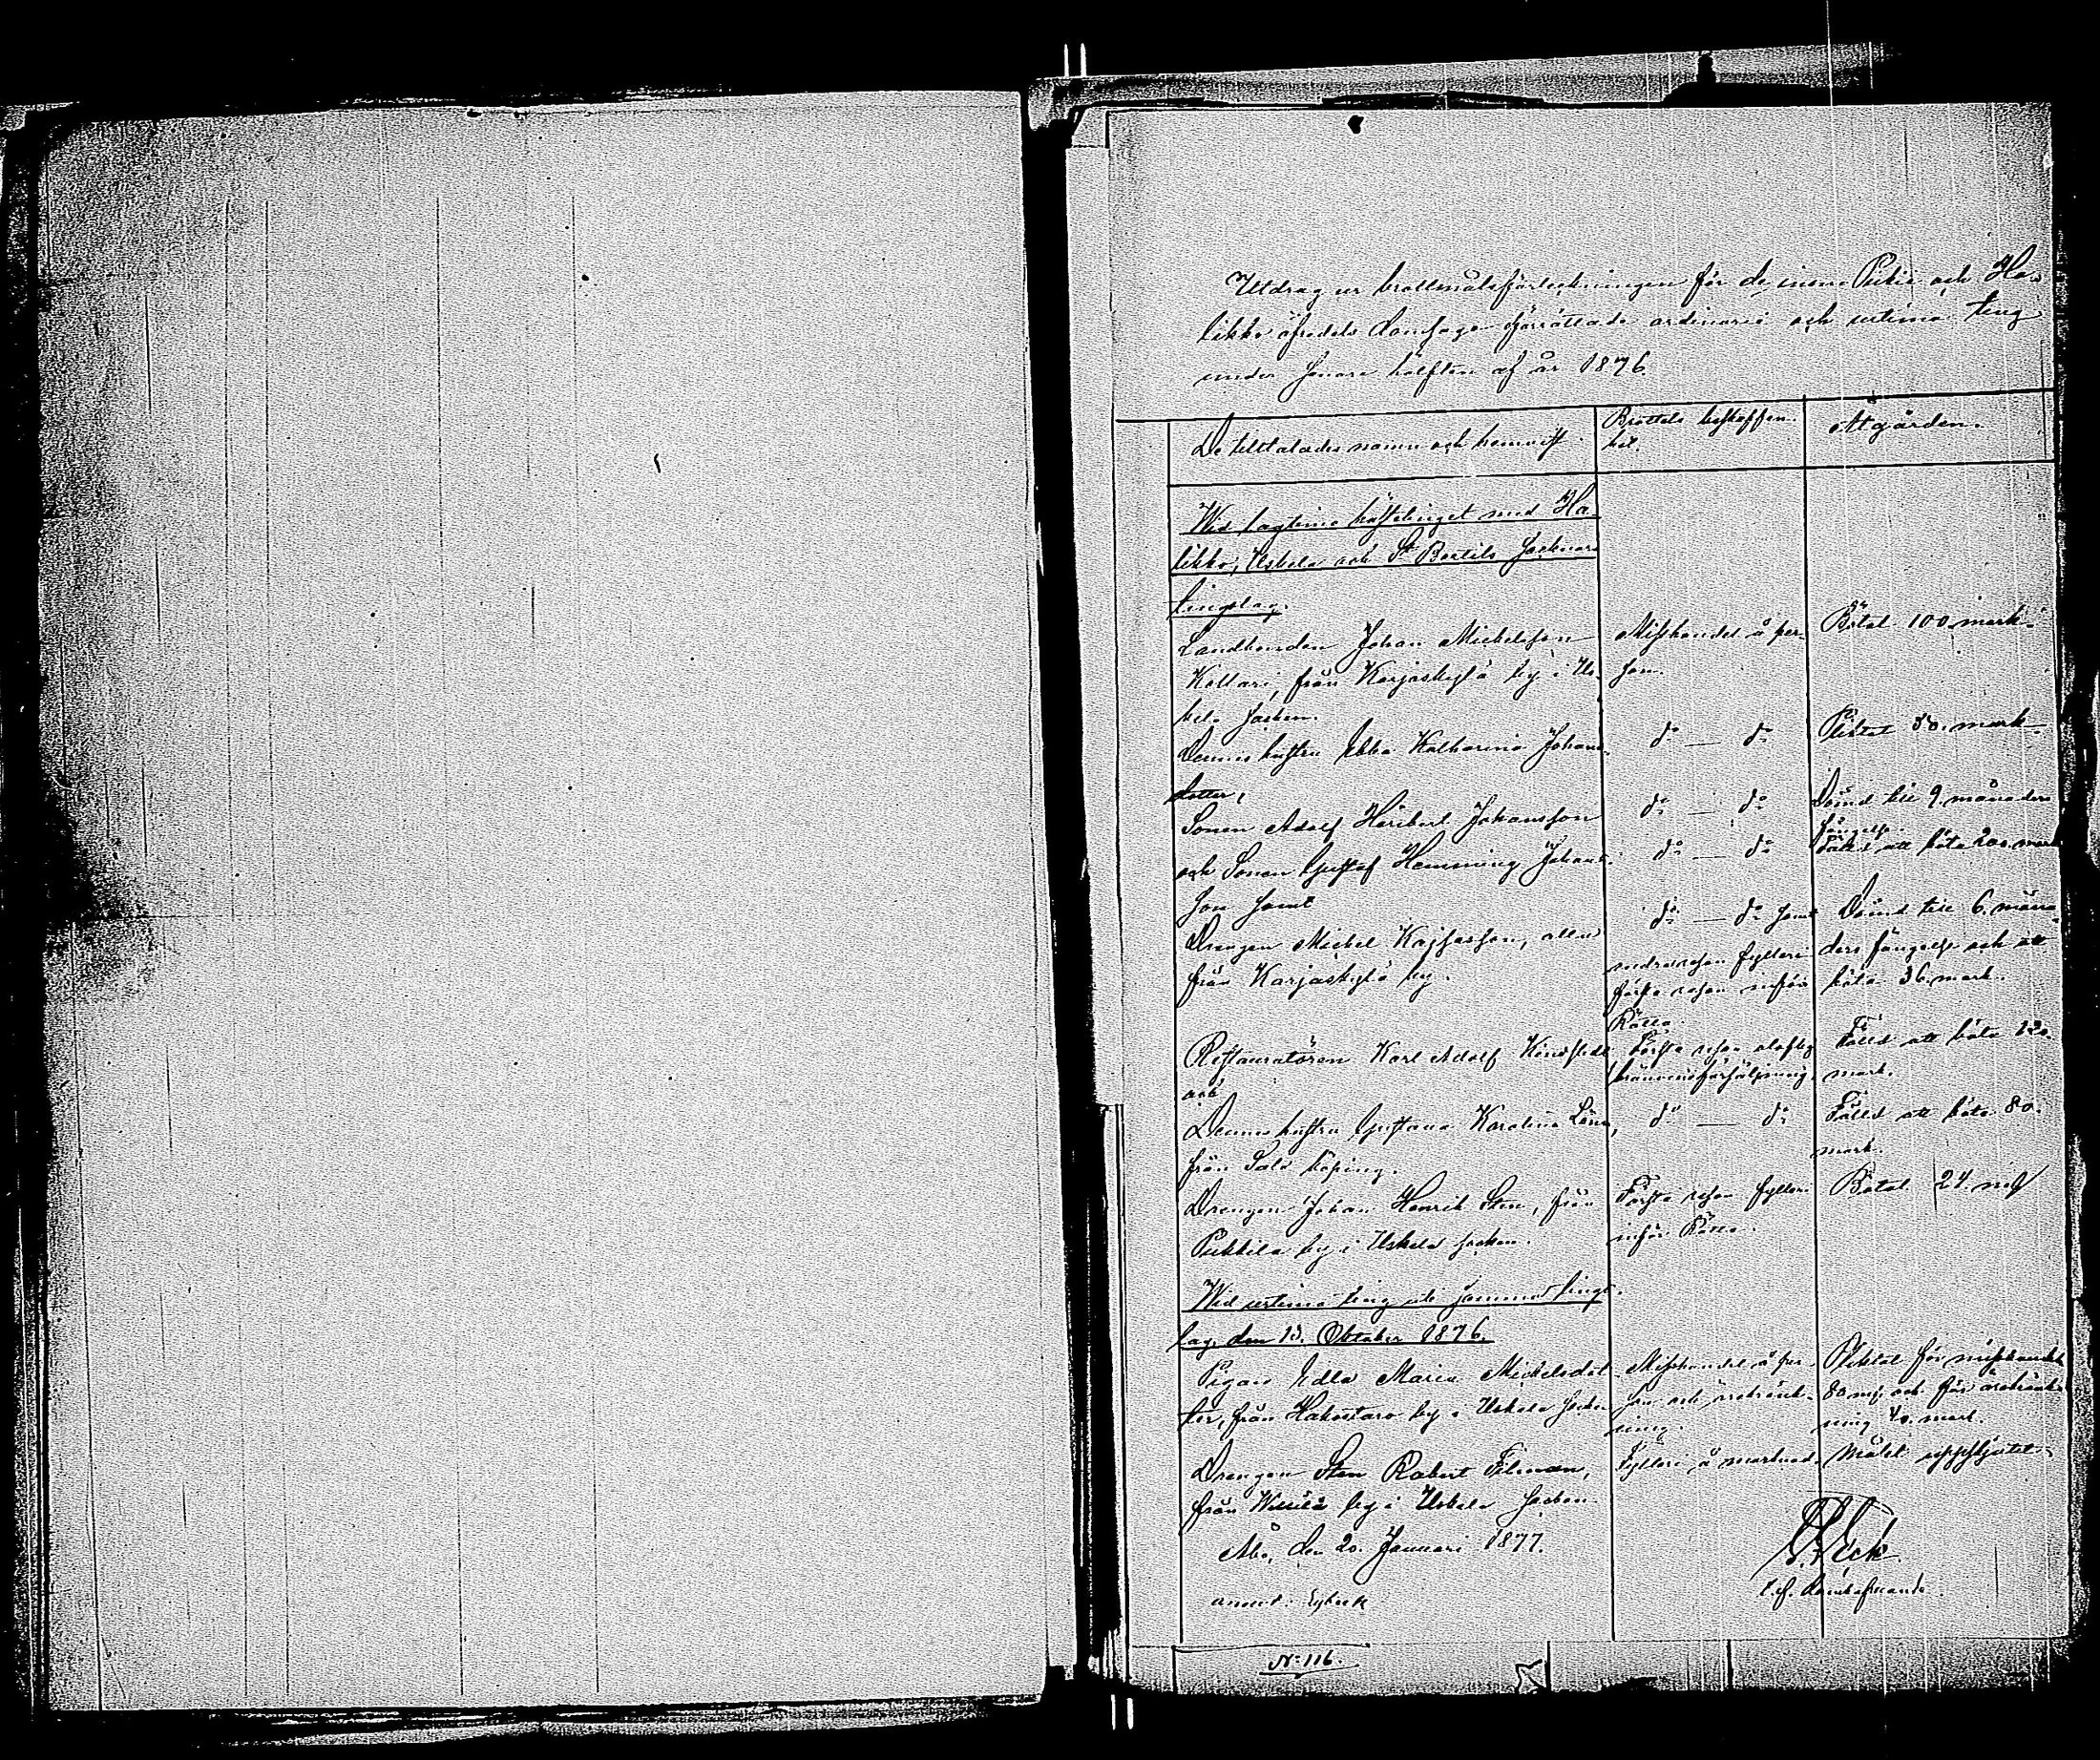 Utdrag ur brottmålsförteckningen för de inom Pikie och Ha-
likko öfredels domsaga förrättade ordinarie och urtima ting
under senare hälften af år 1876.
De tilltalades namn och hemvist.
Brottets beskaffen-
het.
Åtgärden.
Wid lagtima hösttinget med Ha-
likko, Uskela och St Bertils socknars
tingslag.
Landbonden Johan Michelsson
Kollari, från Karjaskylä by i Us-
kela socken.
Misshandel å per-
son.
Bötat 100 mark.
Dennes hustru Ebba Katharina Johans-
dotter,
do — do
Pliktat 50. mark.
Sonen Adolf Heribert Johansson
do — do
Dömd till 9. månaders
fängelse.
och Sonen Gustaf Hemming Johans-
son samt
do — do
Fälld att böta 200. mark
Drengen Michel Kajsasson, alla
från Karjaskylä by.
do — do samt
andra resan fylleri
första resan inför
Rätta.
Dömd till 6. måna-
ders fängelse och att
böta 36. mark.
Restauratören Karl Adolf
och
Första resan olaflig
bränvinsförsäljning.
Fälld att böta 120.
mark.
Dennes hustru Gustava Karolina
från Salo köping.
do — do
Fälld att böta 80.
mark.
Drengen Johan Henrik Sten, från
Pukkila by i Uskela socken.
Första resan fylleri
inför Rätta.
Bötat 24. mk
Wid urtima ting uti samma tings-
lag den 13. Oktober 1876.
Pigan Edla Maria Michelsdot-
ter, från Hakostaro by i Uskela socken
Misshandel å per-
son och ärekränk-
ning.
Pliktat för misshandel
80 mk. och för ärekränk-
ning 40. mark.
Drengen Sten Robert Filman,
från by i Uskela socken.
Fylleri å marknad.
Målet uppskjutet.
Åbo, den 20. Januari 1877.
t.f. domhafvande.
N:o 116.